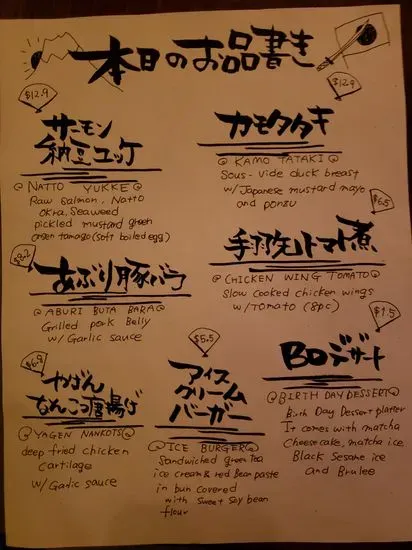 本日のお品書き
$12.9
サーモン
納豆ユッケ
@ NATTO YUKKE @
Raw salmon, Natto
Okra, Seaweed
pickled mustard green
onsen tamago (soft boiled egg)
$12.9
カモタタキ
@ KAMO TATAKI @
Sous-Vide duck breast
w/ Japanese mustard mayo
and ponzu
あぶり豚バラ
@ ABURI BUTA BARA @
Grilled pork Belly
w/ Garlic sauce
$6.5
手羽先トマト煮
@ CHICKEN WING TOMATO @
Slow cooked chicken wings
w/ TOMATO (8pc)
$6.9
やげん
なんこつ唐揚げ
@ YAGEN NANKOTS @
deep fried chicken
cartilage
w/ Garlic sauce
$5.5
アイス
クリーム
バーガー
@ ICE BURGER @
Sandwiched green tea
ice cream & red Bean paste
in bun covered
with sweet soy bean
flour
BDデザート
@ BIRTH DAY DESSERT @
Birth Day Dessert platter
It comes with matcha
Cheesecake, matcha ice
Black Sesame ice
and Brulee